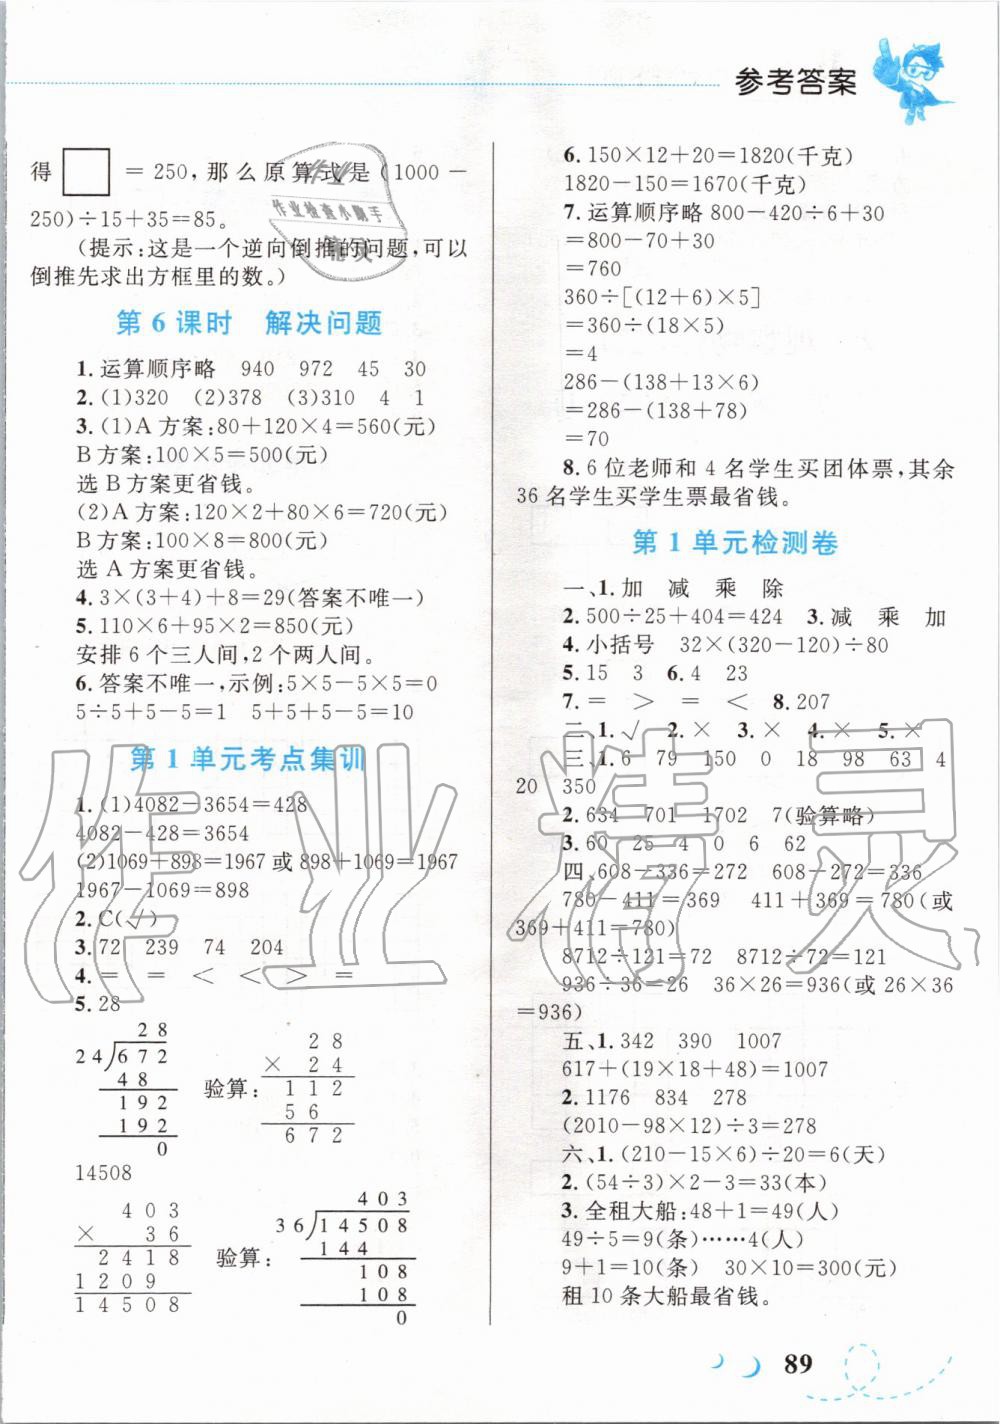 参考答案
得□=250,那么原算式是(1000-
250)÷15+35=85。
(提示:这是一个逆向倒推的问题,可以
倒推先求出方框里的数。)
第6课时 解决问题
1.运算顺序略 940 972 45 30
2.(1)320 (2)378 (3)310 4 1
3.(1)A方案:80+120×4=560(元)
B方案:100×5=500(元)
选B方案更省钱。
(2)A方案:120×2+80×6=720(元)
B方案:100×8=800(元)
选A方案更省钱。
4.3×(3+4)+8=29(答案不唯一)
5.110×6+95×2=850(元)
安排6个三人间,2个两人间。
6.答案不唯一,示例:5×5-5×5=0
5÷5+5-5=1 5+5+5-5=10
第1单元考点集训
1.(1)4082-3654=428
4082-428=3654
(2)1069+898=1967或898+1069=1967
1967-1069=898
2.C(√)
3.72 239 74 204
4.= = < < > =
5.28
28
24)672
48
192
192
0
验算:
28
×24
112
56
672
14508
403
×36
2418
1209
14508
验算:
403
36)14508
144
108
108
0
6.150×12+20=1820(千克)
1820-150=1670(千克)
7.运算顺序略 800-420÷6+30
=800-70+30
=760
360÷[(12+6)×5]
=360÷(18×5)
=4
286-(138+13×6)
=286-(138+78)
=70
8.6位老师和4名学生买团体票,其余
36名学生买学生票最省钱。
第1单元检测卷
一、1.加 减 乘 除
2.500÷25+404=424 3.减 乘 加
4.小括号 32×(320-120)÷80
5.15 3 6.4 23
7.= > = < 8.207
二、1.√ 2.× 3.× 4.× 5.×
三、1.6 79 150 0 18 98 63 4
20 350
2.634 701 1702 7(验算略)
3.60 25 4 0 6 62
四、608-336=272 608-272=336
780-411=369 411+369=780(或
369+411=780)
8712÷121=72 8712÷72=121
936÷36=26 36×26=936(或26×36
=936)
五、1.342 390 1007
617+(19×18+48)=1007
2.1176 834 278
(2010-98×12)÷3=278
六、1.(210-15×6)÷20=6(天)
2.(54÷3)×2-3=33(本)
3.全租大船:48+1=49(人)
49÷5=9(条)……4(人)
9+1=10(条) 30×10=300(元)
租10条大船最省钱。
89
作业
作业检查小助手
精灵
作业精灵